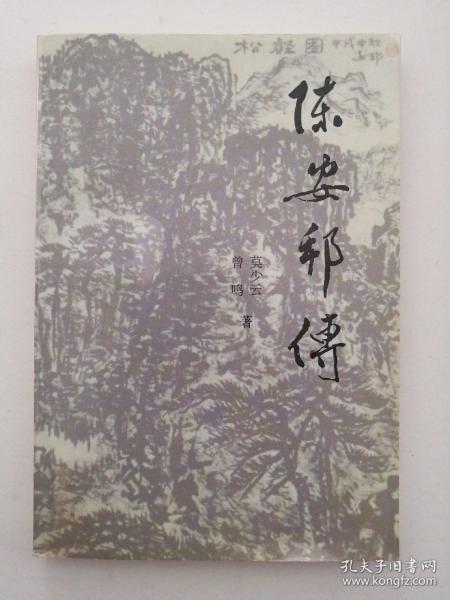 陈安邦傳
莫少云
曾鸣
著
松壑图
孔夫子旧书网
www.kongfz.com